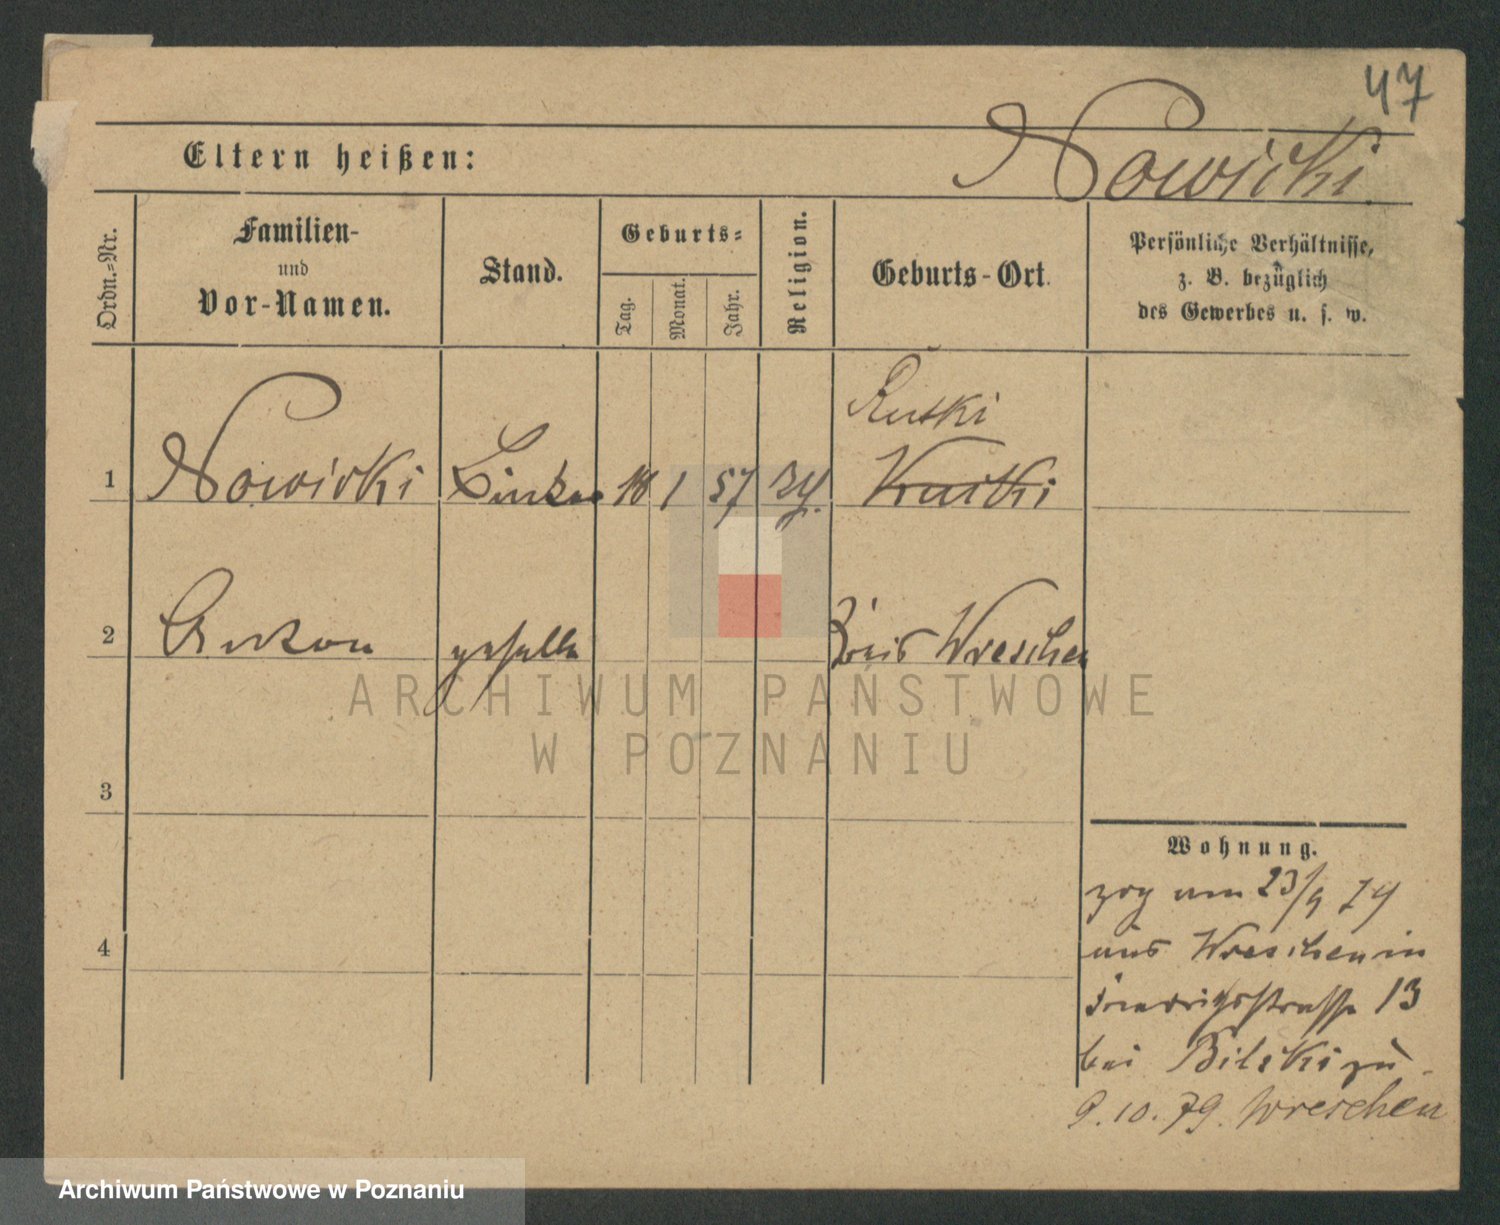 47
Nowicki
Eltern heißen:
Ordn.=Nr.
Familien-
und
Vor-Namen.
Stand.
Geburts=
Tag.
Monat.
Jahr.
Religion.
Geburts-Ort.
Persönliche Verhältnisse,
z. B. bezüglich
des Gewerbes u. s. w.
Rutki
1 Nowicki 1 57
2 Anton geselle Kreis Wreschen
ARCHIWUM PAŃSTWOWE
W POZNANIU
3
Wohnung.
zog am 23/9 79
4
aus Wreschen in
Friedrichsstrasse 13
bei Bilski zu.
9.10.79. Wreschen
Archiwum Państwowe w Poznaniu